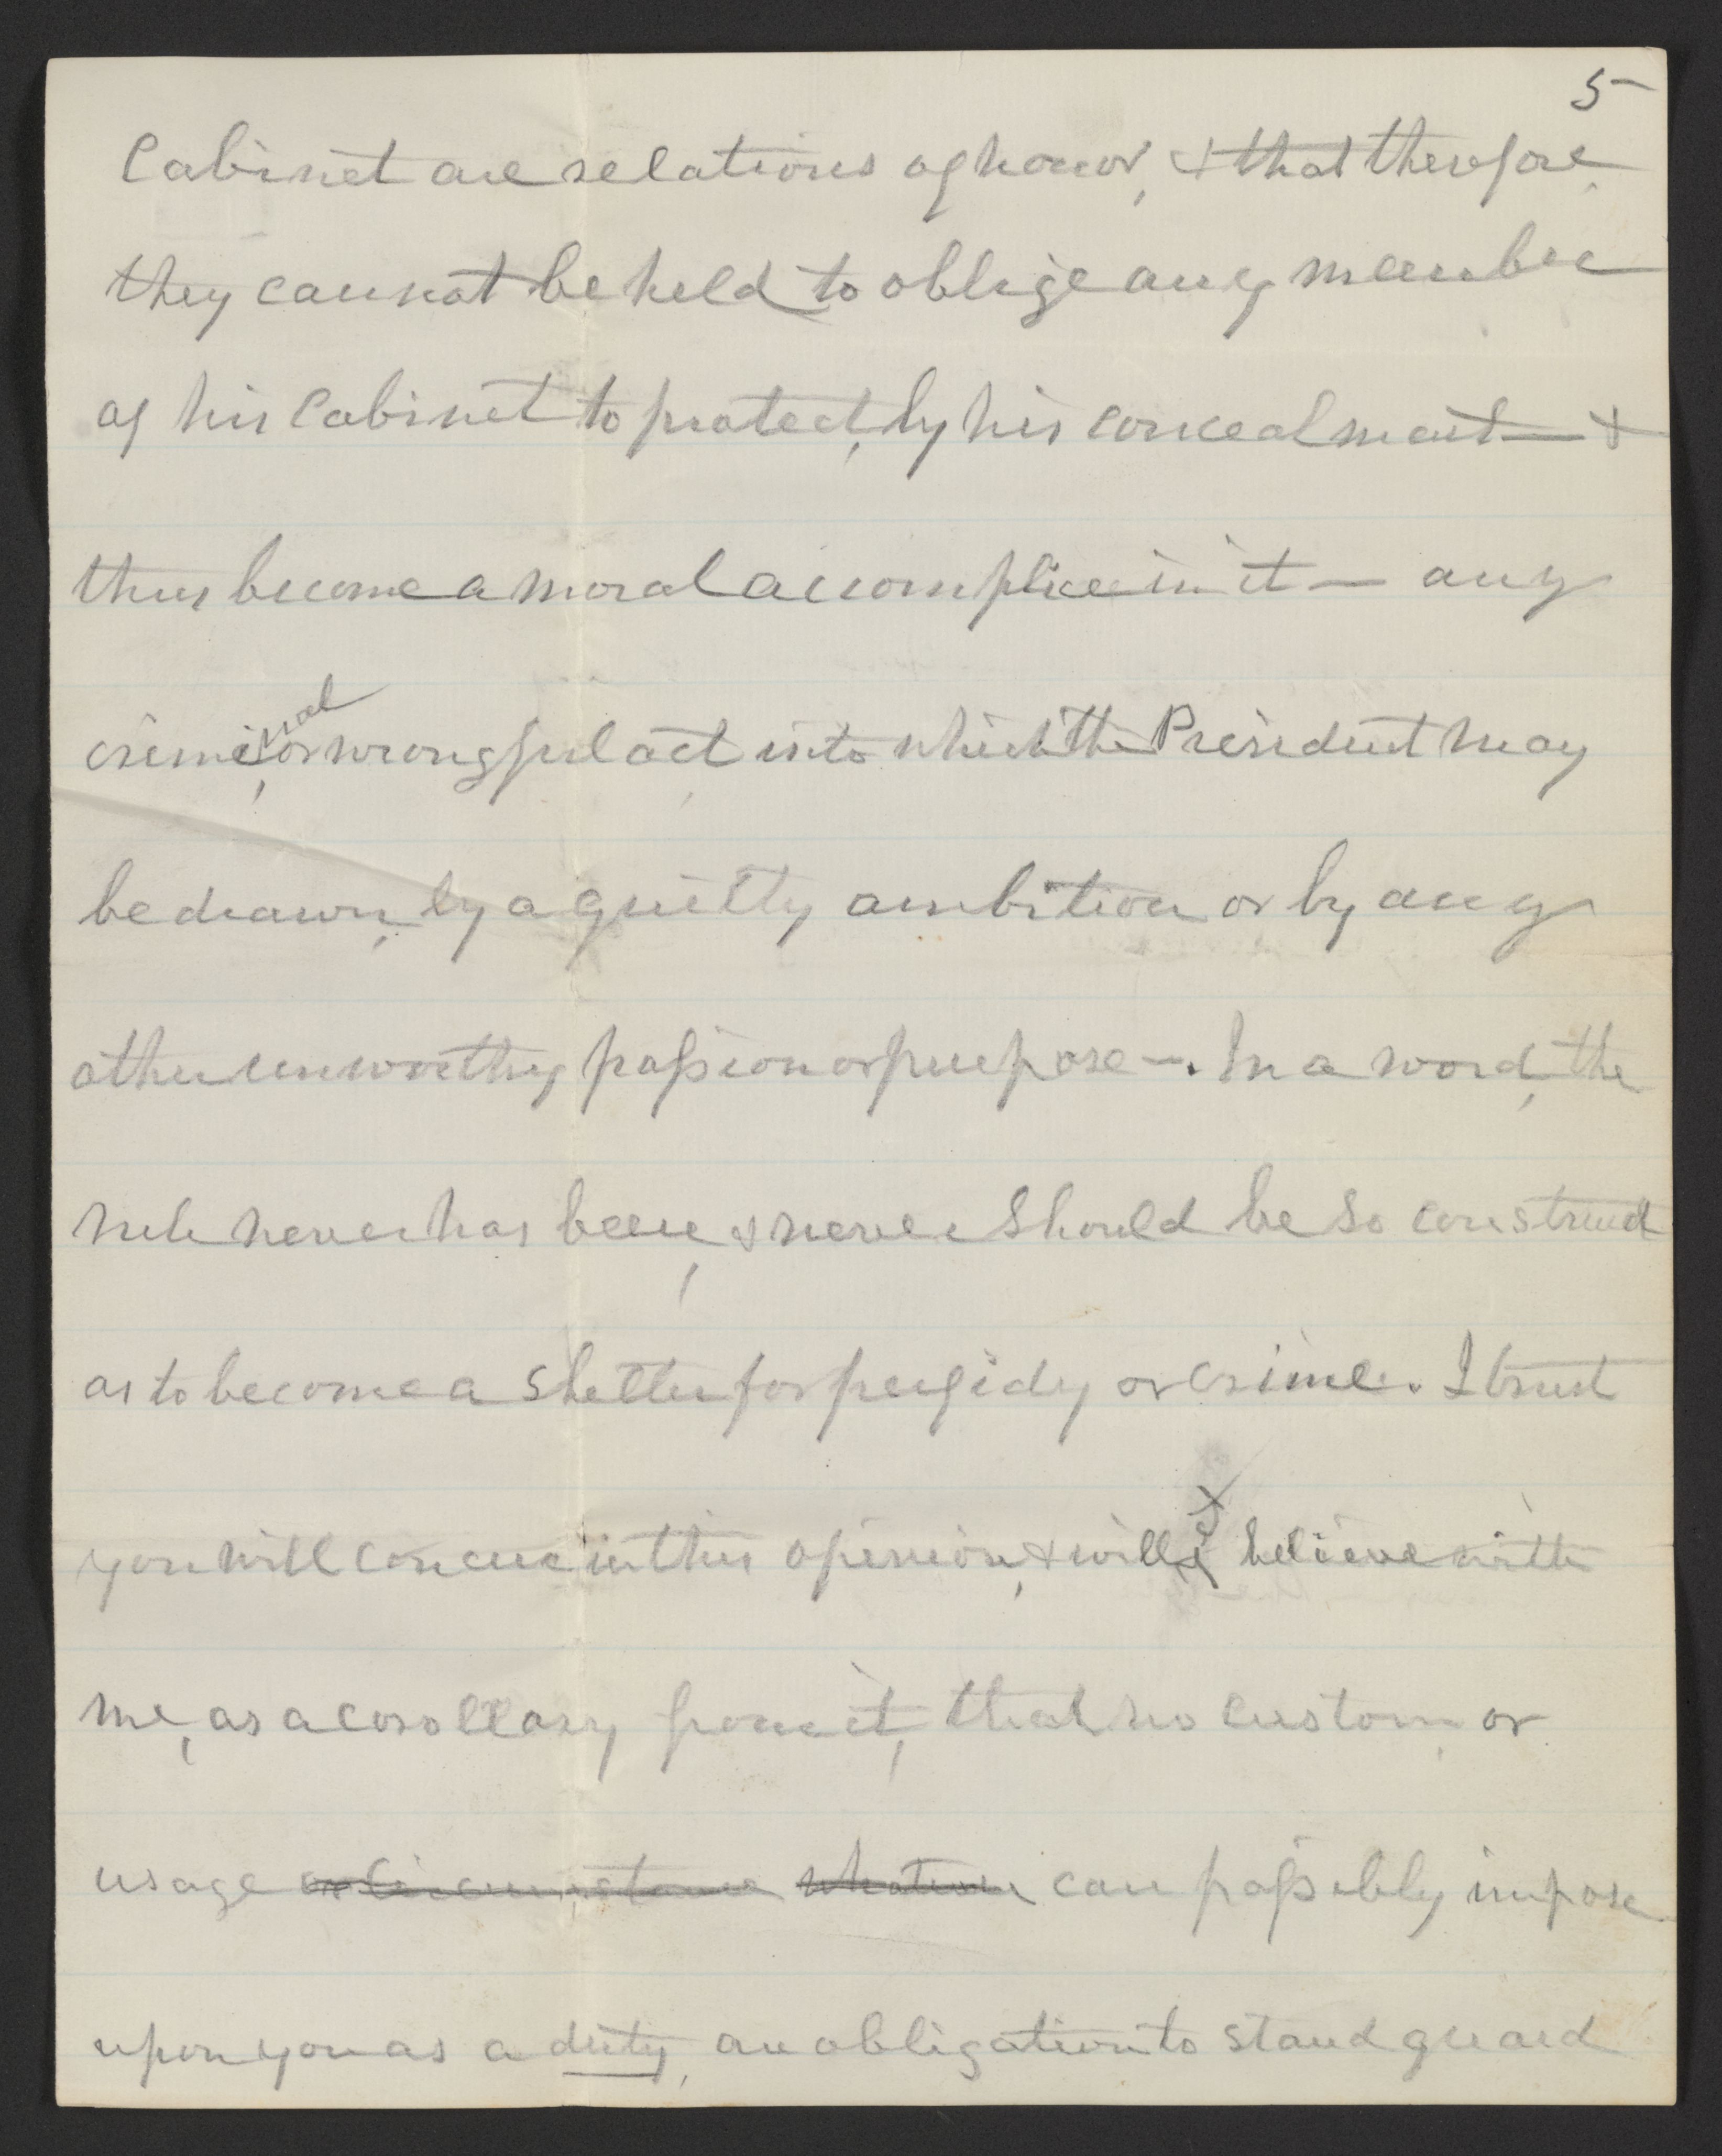 5
Cabinet are relations of honor, & that therefore
they cannot be held to oblige any member
of his Cabinet to protect, by his concealment — &
thus become a moral accomplice in it — any
criminal, or wrongful act into which the President may
be drawn, by a guilty ambition or by any
other unworthy passion or purpose —. In a word, the
rule never has been, & never should be so construed
as to become a shelter for perfidy or crime. I trust
you will concur in this opinion, & will believe with
me, as a corollary from it, that no custom or
usage or circumstance whatever can possibly impose
upon you as a duty, an obligation to stand guard